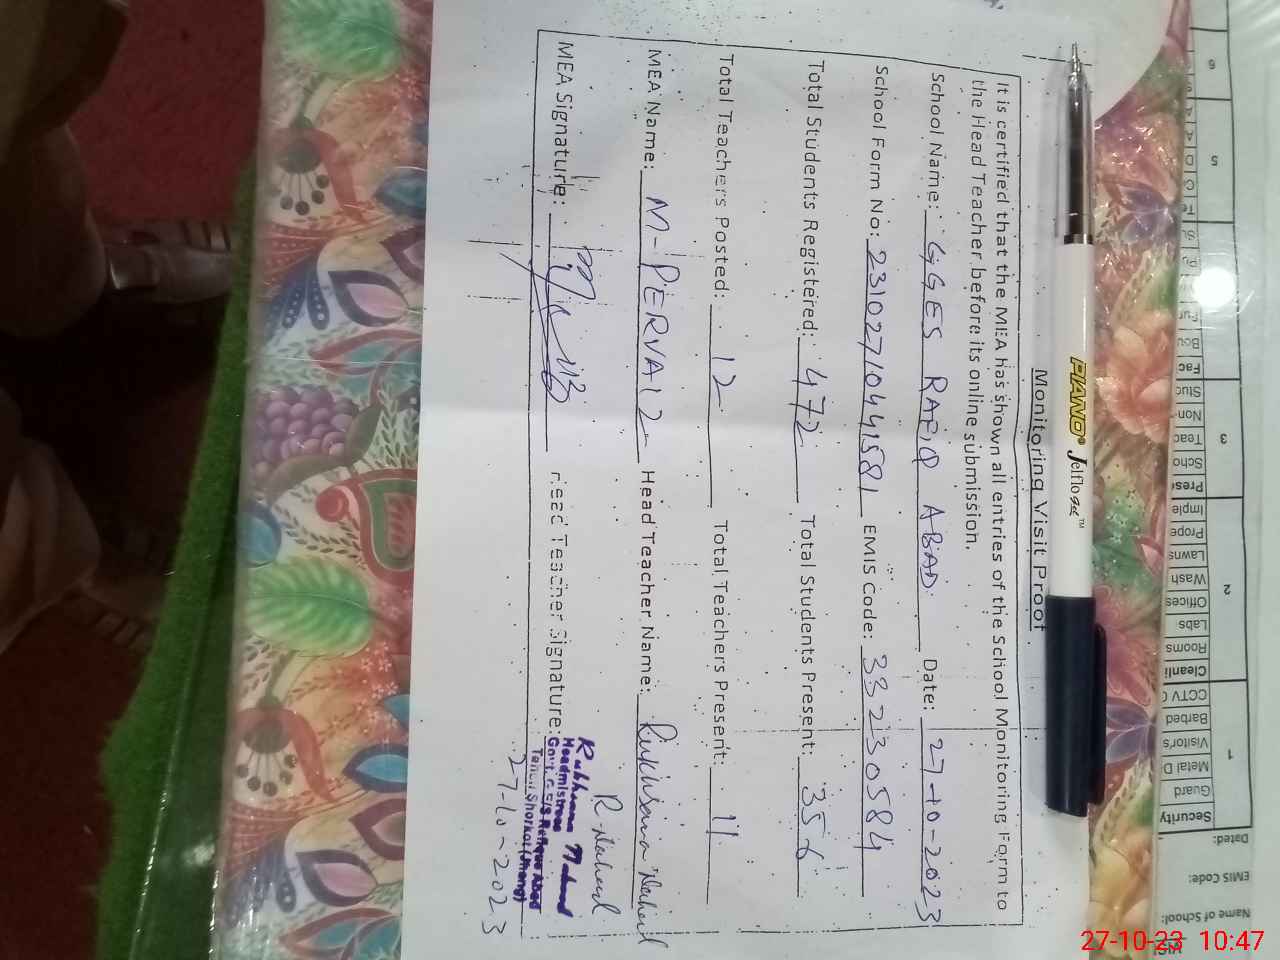 Monitoring Visit Proof
It is certified that the MEA has shown all entries of the School Monitoring Form to
the Head Teacher before its online submission.
School Name: GGES RAFIQ ABAD Date: 27-10-2023
School Form No: 23102710441581 EMIS Code: 33230584
Total Students Registered: 472 Total Students Present: 356
Total Teachers Posted: 12 Total Teachers Present: 11
MEA Name: M-PERVAIZ Head Teacher Name: Rukhsana
MEA Signature: Head Teacher Signature:
Headmistress
Tehsil Shorkot (Jhang)
27-10-2023
PIANO® Jelflo gel™
6
5
3
2
1
Fac
Stud
Non-
Teac
Scho
Prese
Imple
Prope
Lawns
Wash
Offices
Labs
Rooms
Cleanli
CCTV C
Barbed
Visitor's
Metal D
Guard
Security
Dated:
EMIS Code:
Name of School:
27-10-23 10:47